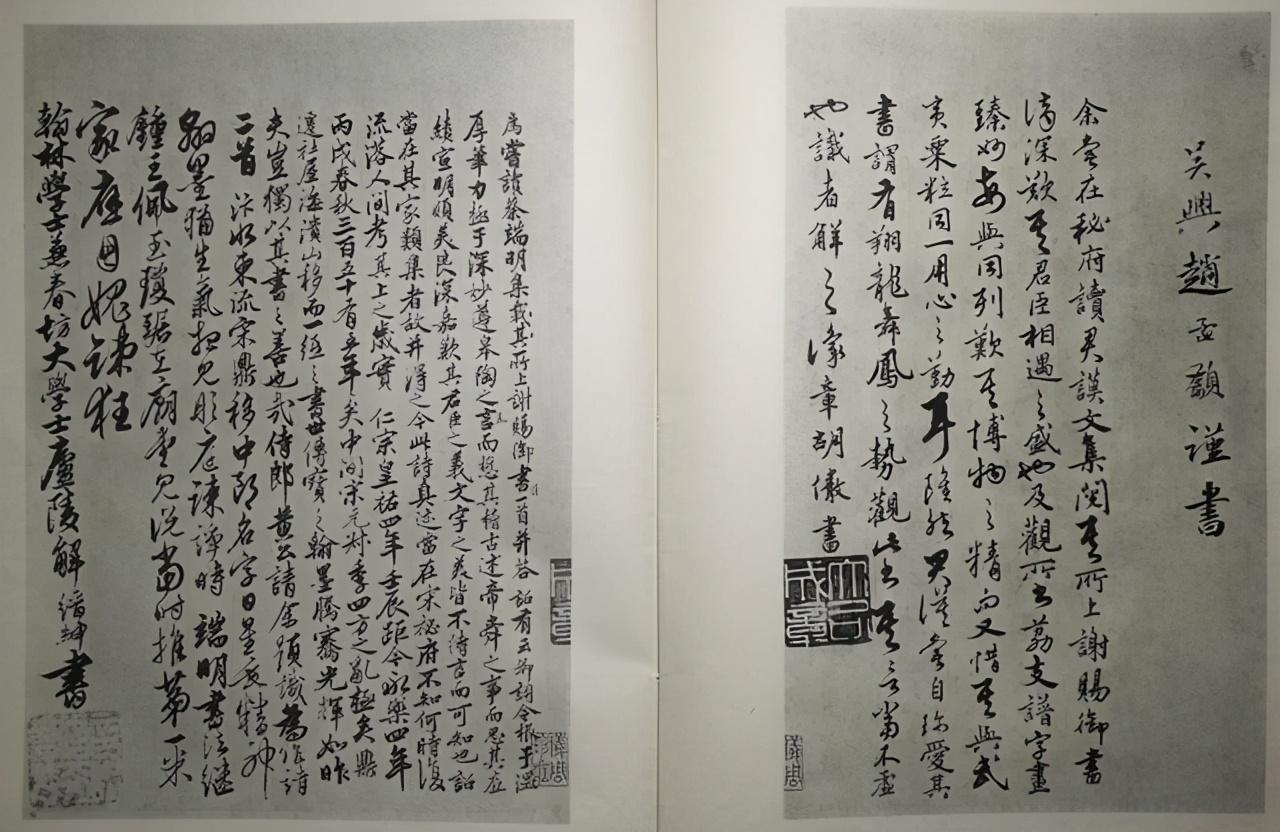 吳興趙孟頫謹書
余嘗在秘府讀君謨文集閱其所上謝賜御書
詩深歎其君臣相遇之盛也及觀所書荔支譜字畫
臻妙每與同列歎其博物之精而又惜其與武
夷粟粒同一用心之勤耳隆然君謨嘗自珍愛其
書謂有翔龍舞鳳之勢觀此書其言當不虛
也識者解之豫章胡儼書
爲嘗讀蔡端明集載其所上謝賜御書詩一首并答詔有云爾詞令根于溫
厚筆力極于深妙遵皋陶之言而懋其稽古述帝舜之事而思其在
宣明嫓美良深嘉歎其君臣之義文字之美皆不待言而可知也詔
當在其家類集者故并得之今此詩真迹當在宋秘府不知何時復
流落人間考其上之歲實 仁宗皇祐四年壬辰距今永樂四年
丙戌春秋三百五十有五年矣中間宋元衰季四方之亂極矣鼎
遷社屋海濱山移而一紙之書世傳寶之翰墨騰騫光輝如昨
夫豈獨以其書之善也哉侍郎黃公請余題識爲作詩
二首 汴水東流宋鼎移中郎名字日星垂精神
翰墨猶生氣想見彤庭諫諍時 端明書法繼
鍾王佩玉瓊琚在廟堂見說當時推第一米
家應自媿諫狂
翰林學士兼春坊大學士廬陵解縉紳書